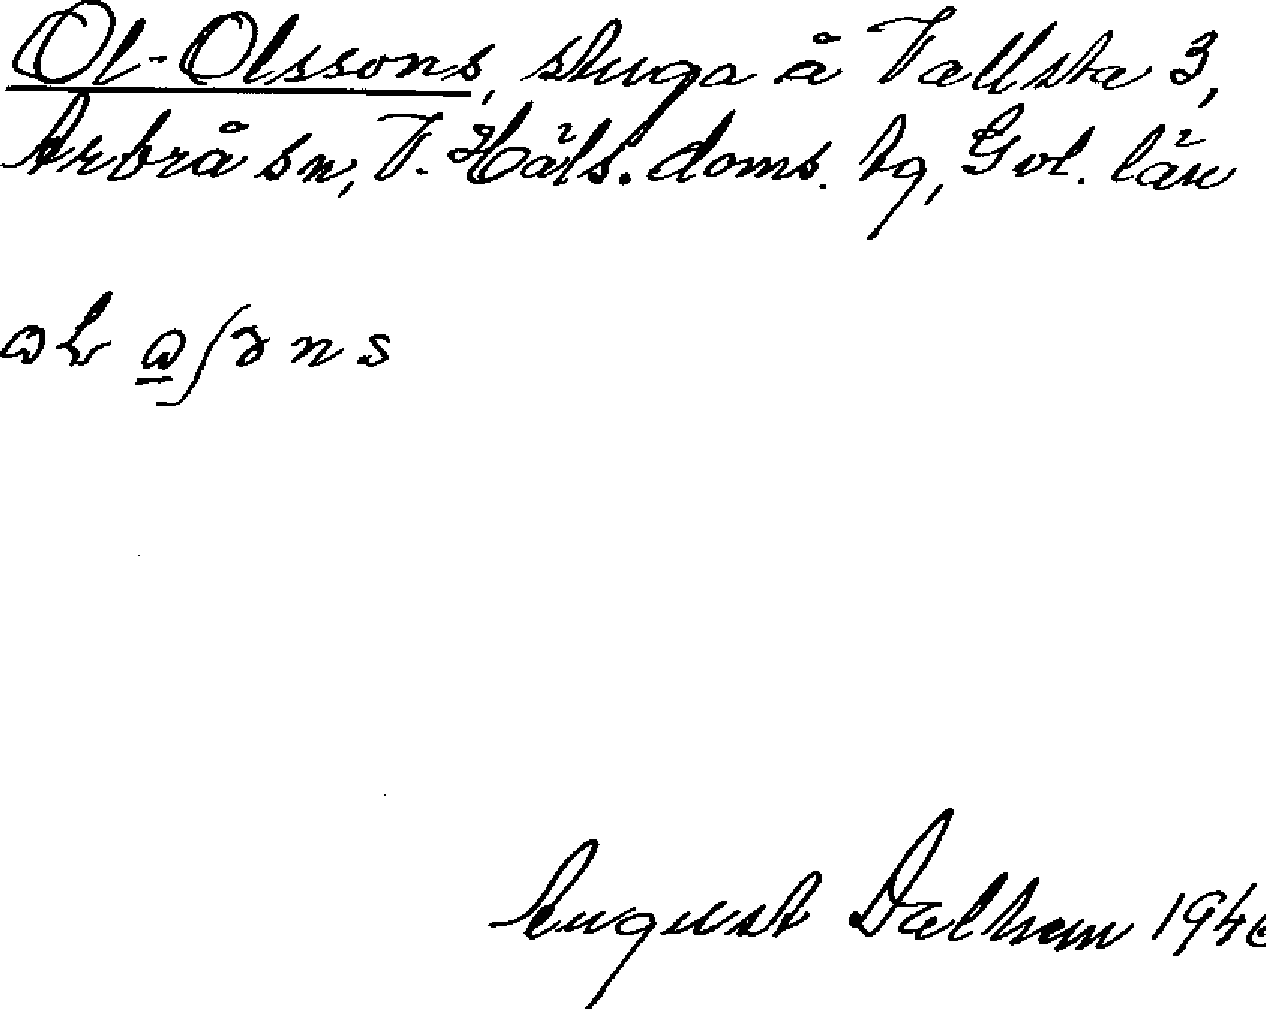 Ol-Olssons, stuga å Vallsta 3,
Arbrå sn, V. Häls. doms. tg, Gvl. län
August Dalham